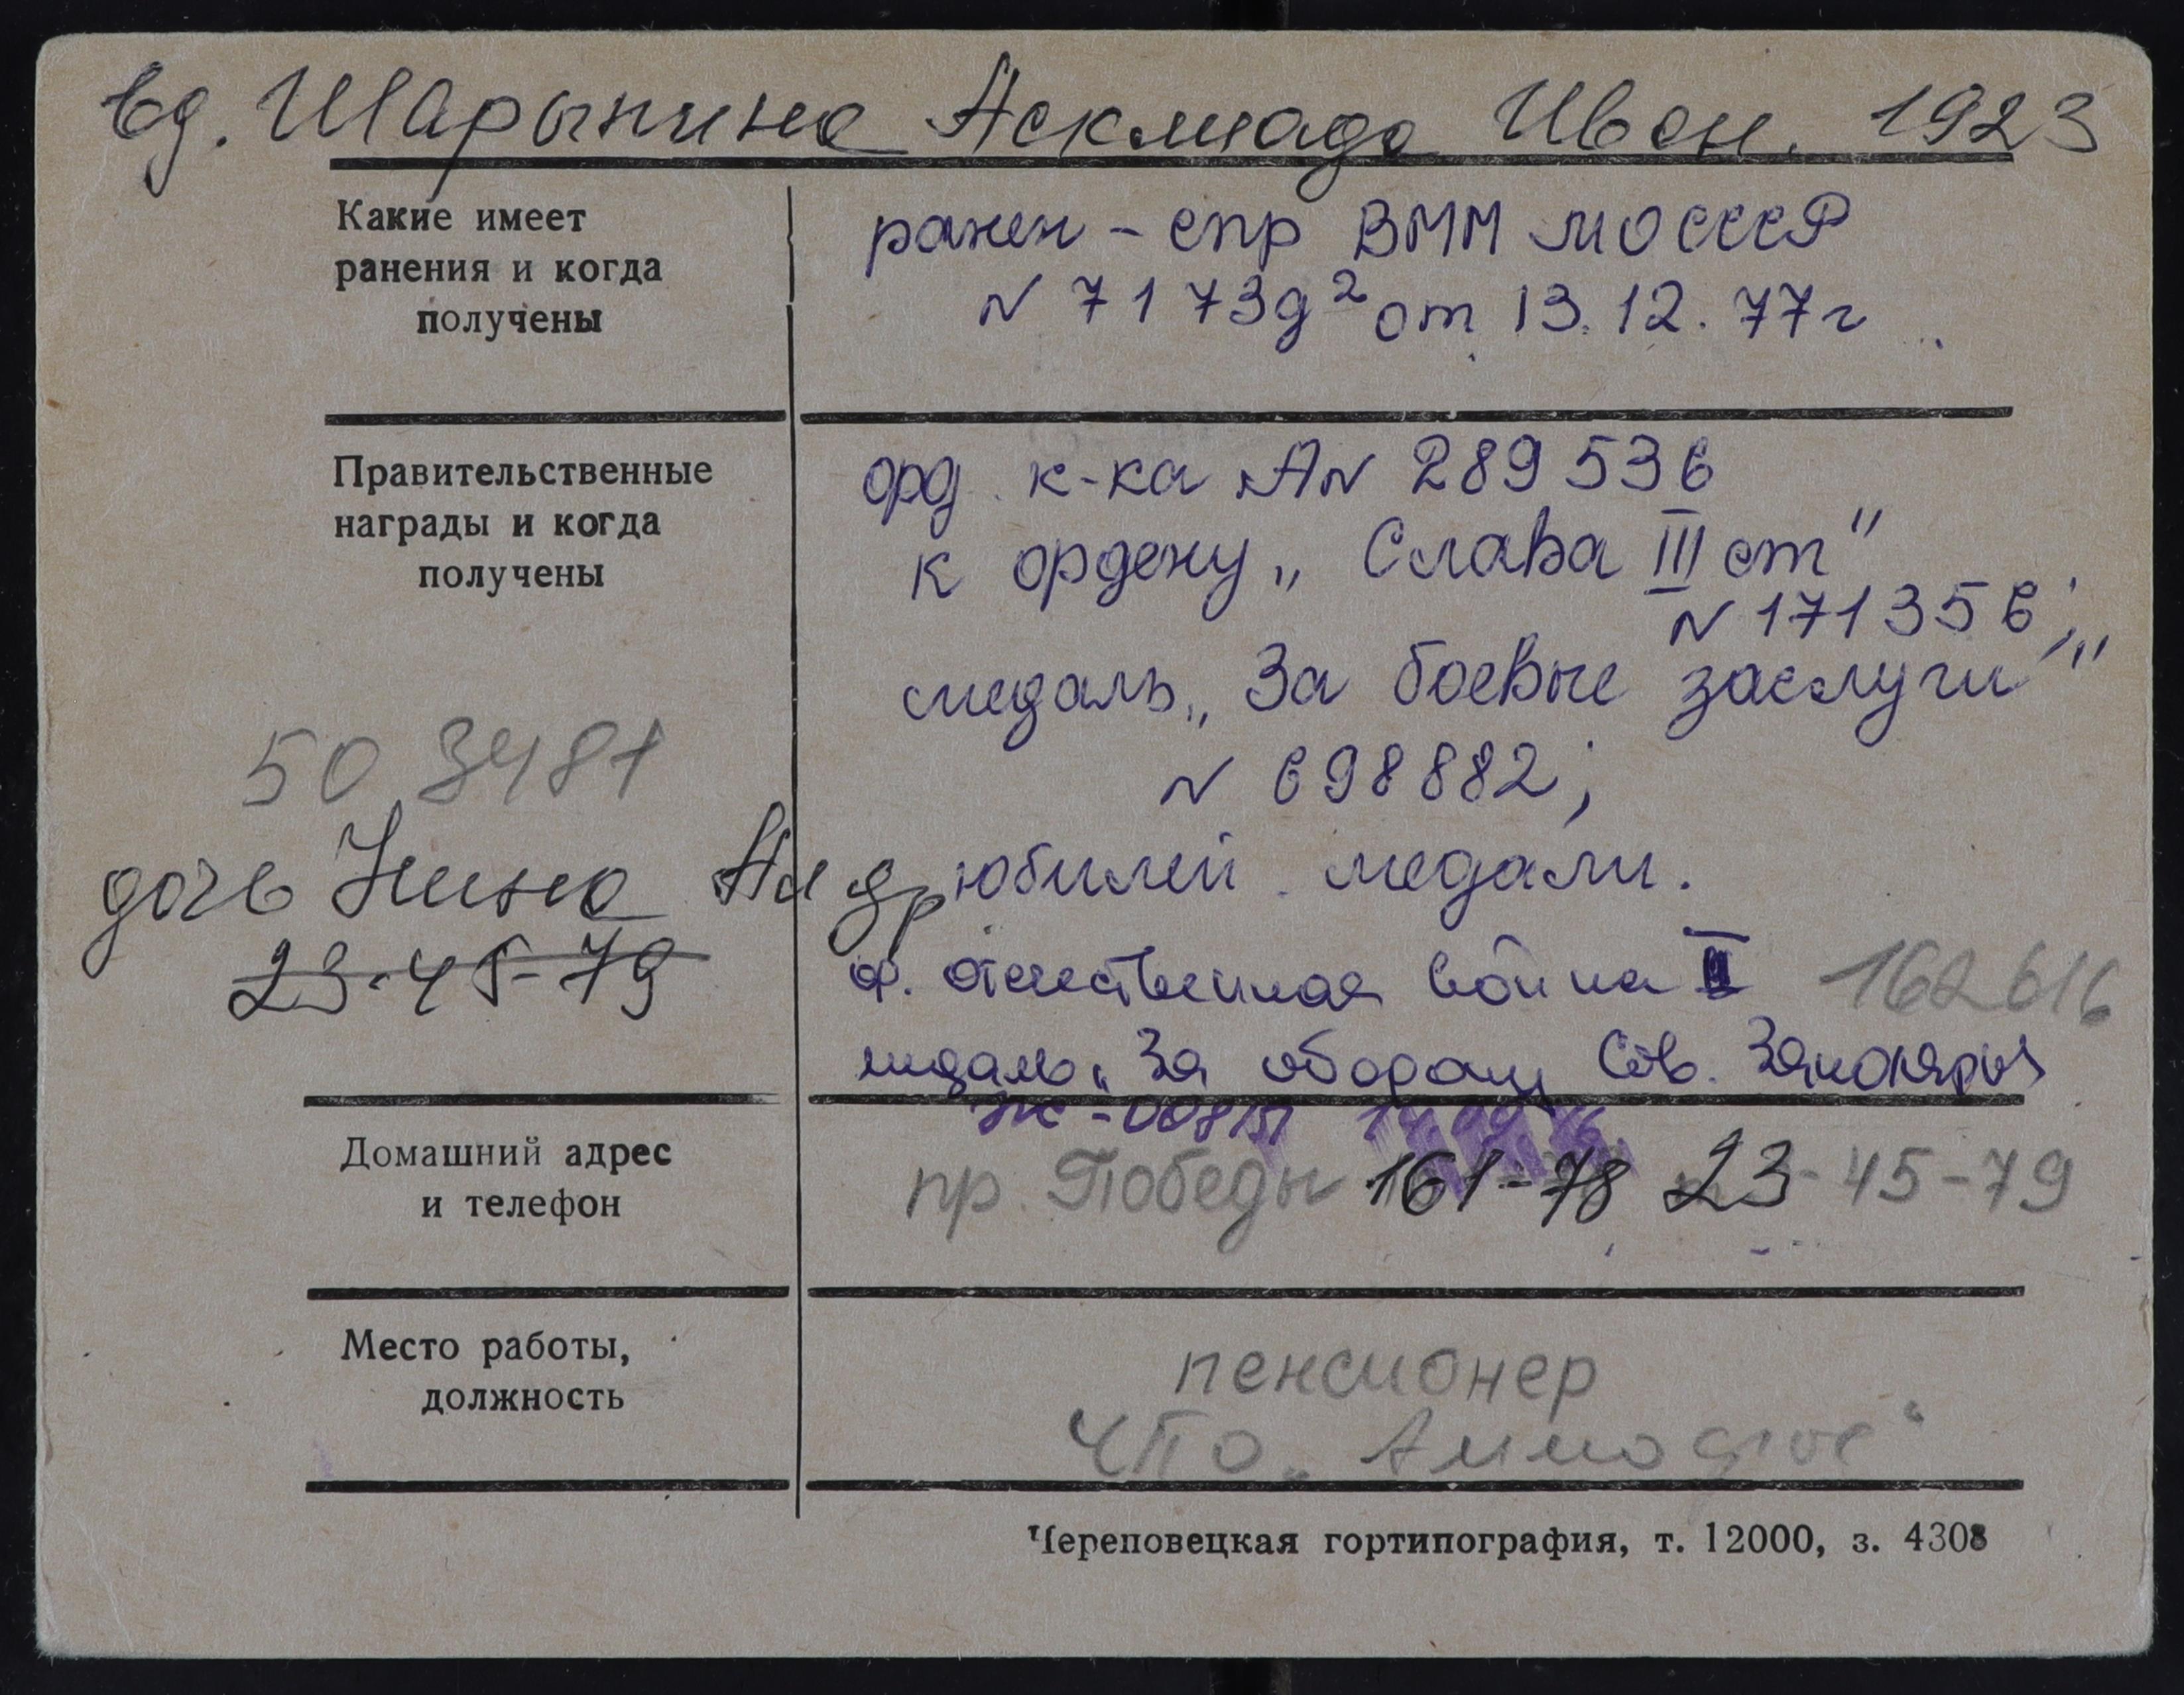 вд. Шарыпина Аскмиада Иван. 1923
Какие имеет
ранения и когда
получены
ранен - спр ВММ МО СССР
N 7173д² от 13.12.77г
Правительственные
награды и когда
получены
орд. к-ка АN 289536
к ордену „Слава III ст"
N 171356;
медаль „За боевые заслуги"
N 698882;
юбилей. медали.
о. отечественная война II 162616
медаль „За оборону Сов. Заполярья
ЖК - 008151
503481
дочь Нина Ал др
23-45-79
Домашний адрес
и телефон
пр. Победы 161-78 23-45-79
Место работы,
должность
пенсионер
ЧПО „Аммофос"
Череповецкая гортипография, т. 12000, з. 4308